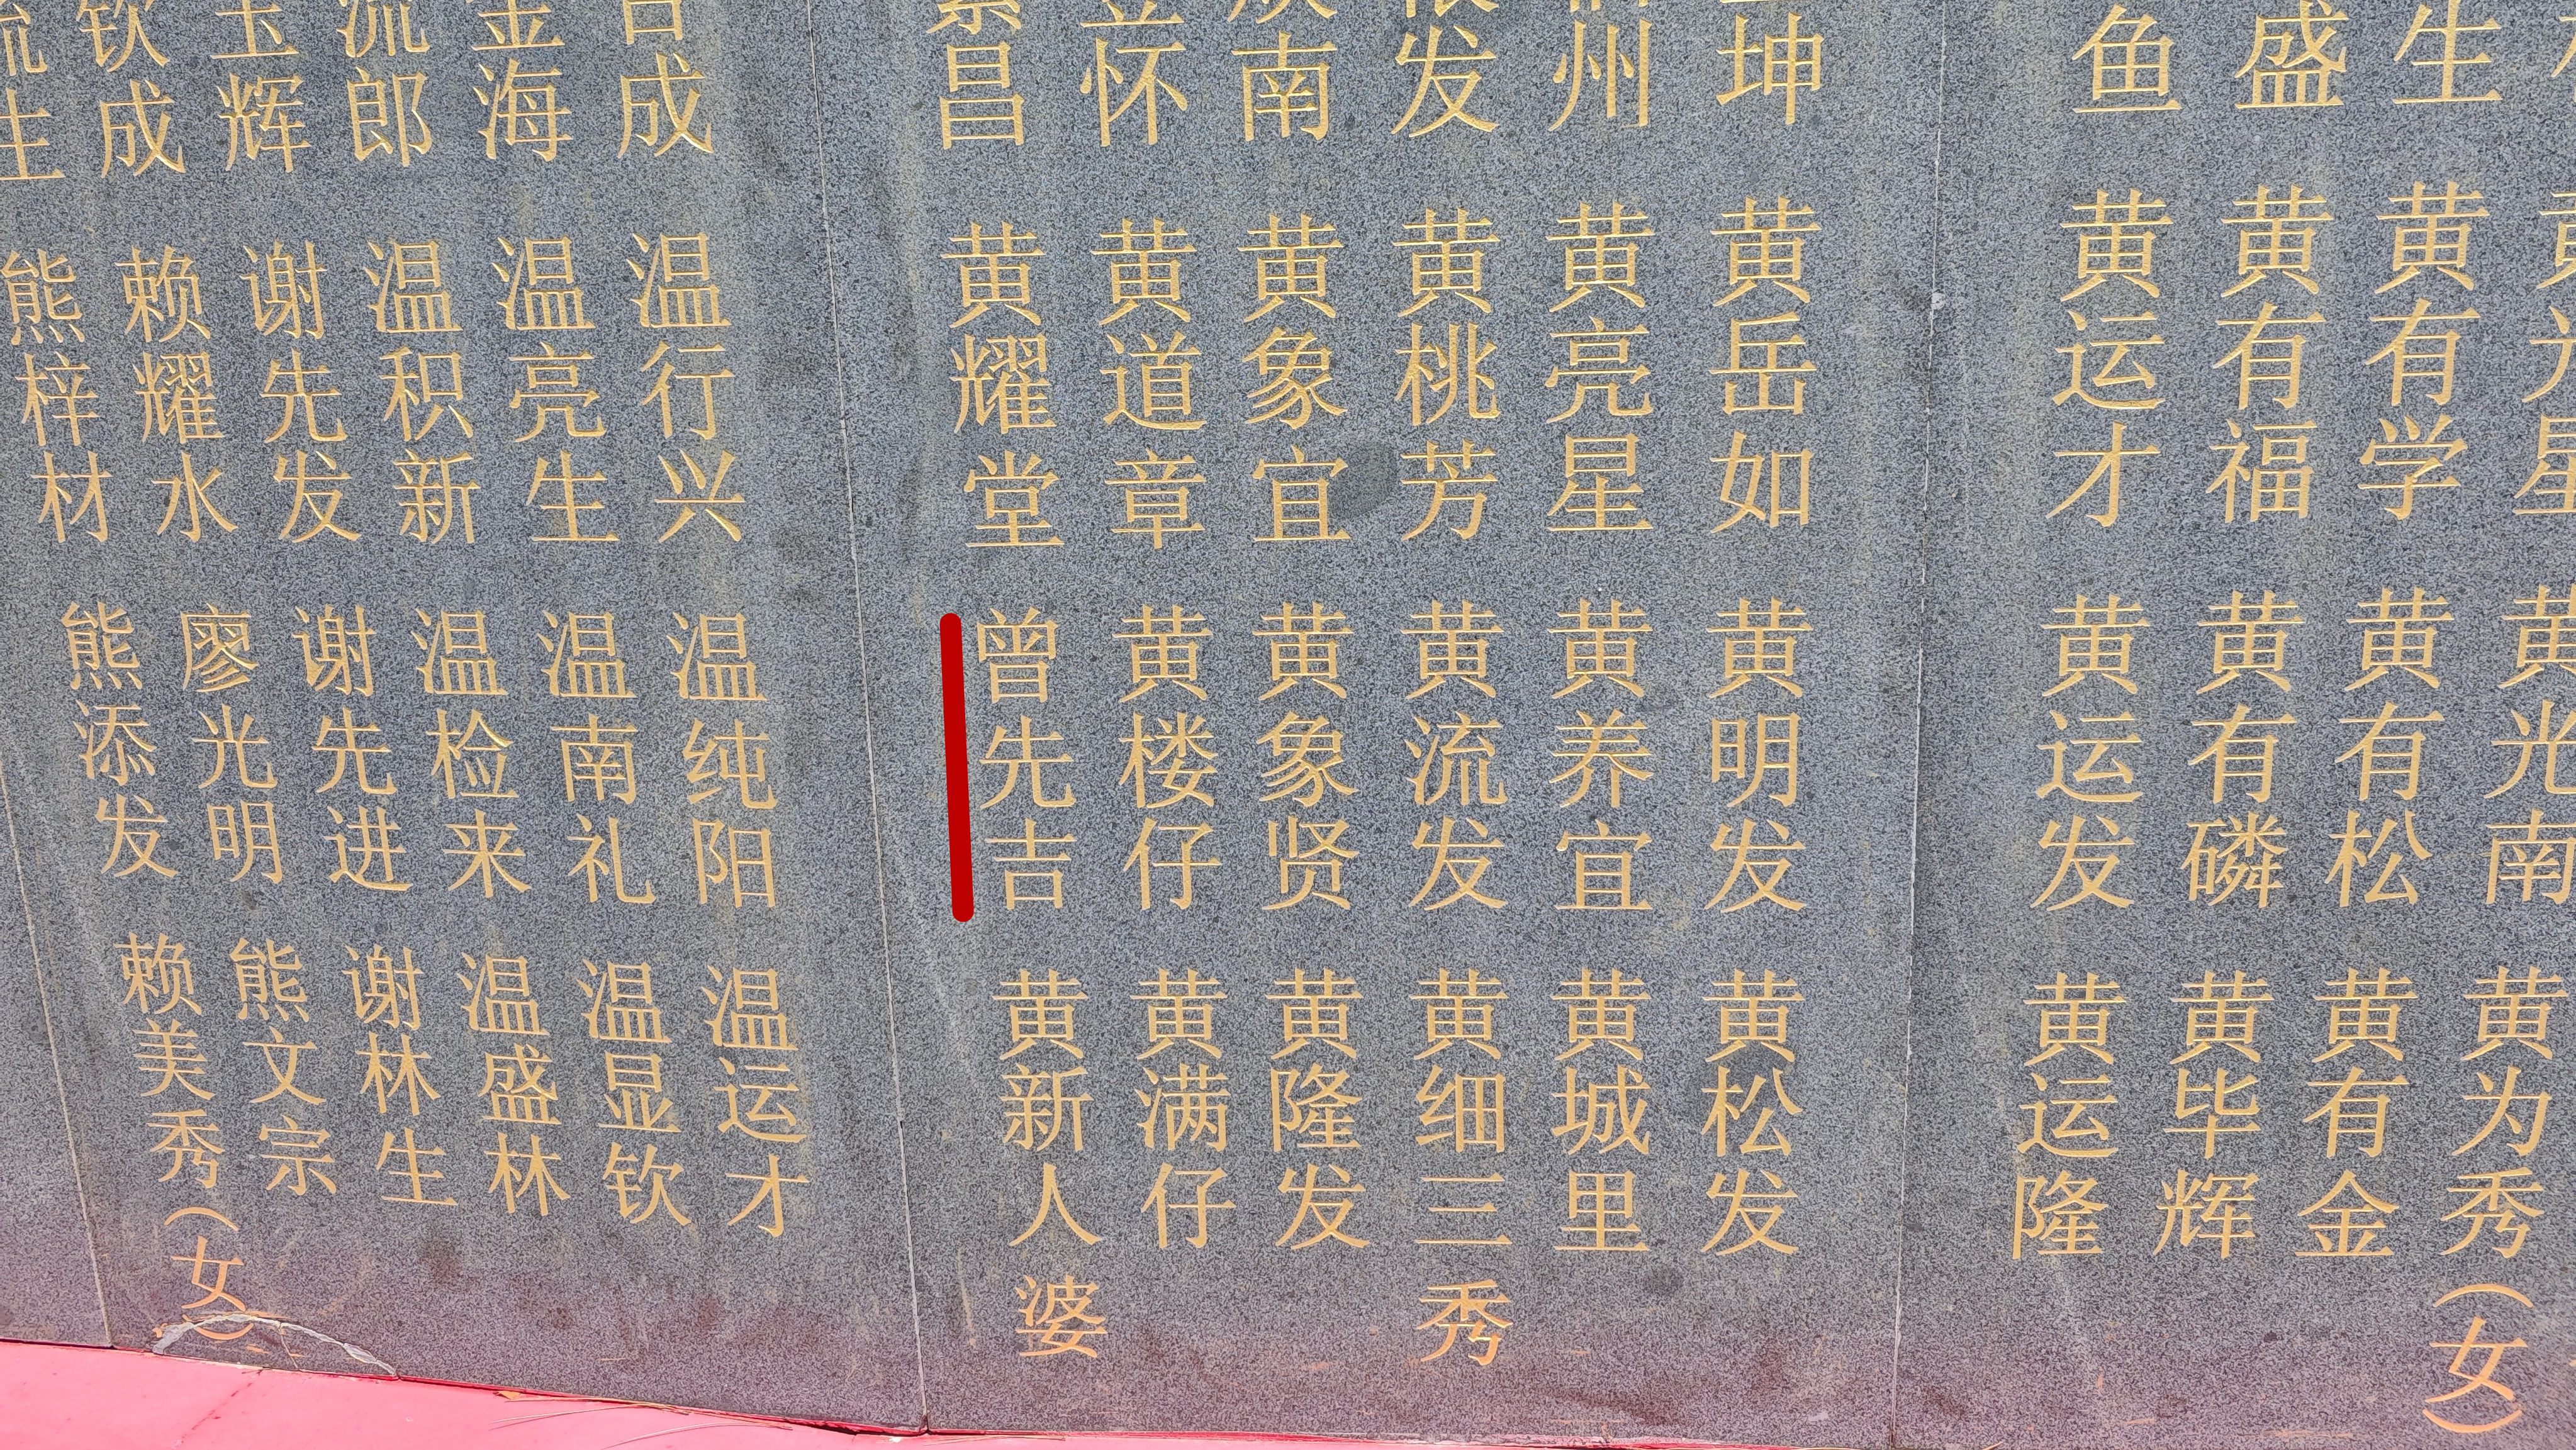 星 黄光南 黄为秀（女）
生 黄有学 黄有松 黄有金
盛 黄有福 黄有磷 黄毕辉
鱼 黄运才 黄运发 黄运隆
坤 黄岳如 黄明发 黄松发
州 黄亮星 黄养宜 黄城里
发 黄桃芳 黄流发 黄细三秀
南 黄象宜 黄象贤 黄隆发
怀 黄道章 黄楼仔 黄满仔
昌 黄耀堂 曾先吉 黄新人婆
成 温行兴 温纯阳 温运才
金海 温亮生 温南礼 温显钦
流郎 温积新 温检来 温盛林
玉辉 谢先发 谢先进 谢林生
钦成 赖耀水 廖光明 熊文宗
生 熊梓材 熊添发 赖美秀（女）